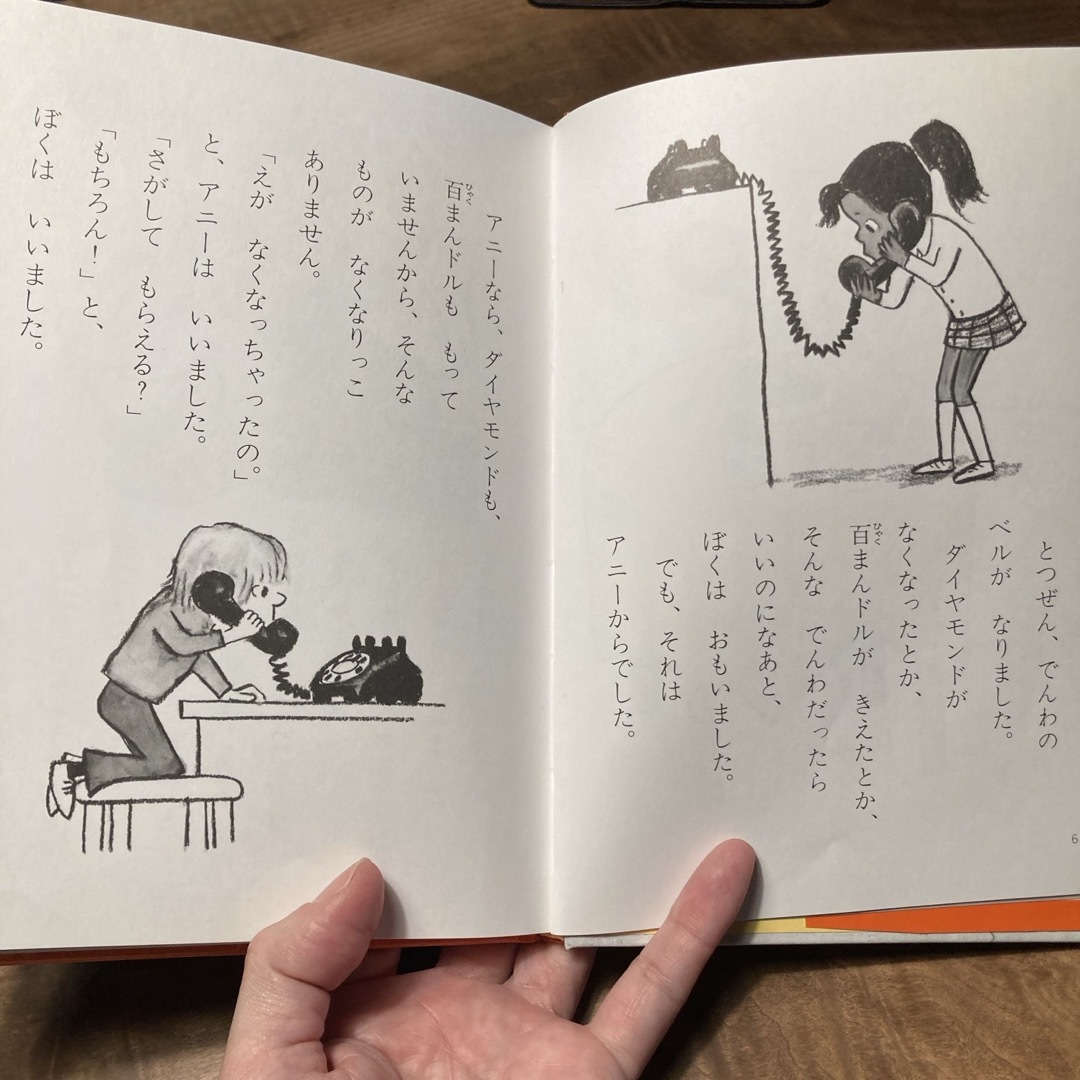 とつぜん、でんわの
ベルが なりました。
ダイヤモンドが
なくなったとか、
百まんドルが きえたとか、
ひゃく
そんな でんわだったら
いいのになあと、
ぼくは おもいました。
でも、それは
アニーからでした。
6
アニーなら、ダイヤモンドも、
百まんドルも もって
ひゃく
いませんから、そんな
ものが なくなりっこ
ありません。
「えが なくなっちゃったの。」
と、アニーは いいました。
「さがして もらえる?」
「もちろん!」と、
ぼくは いいました。